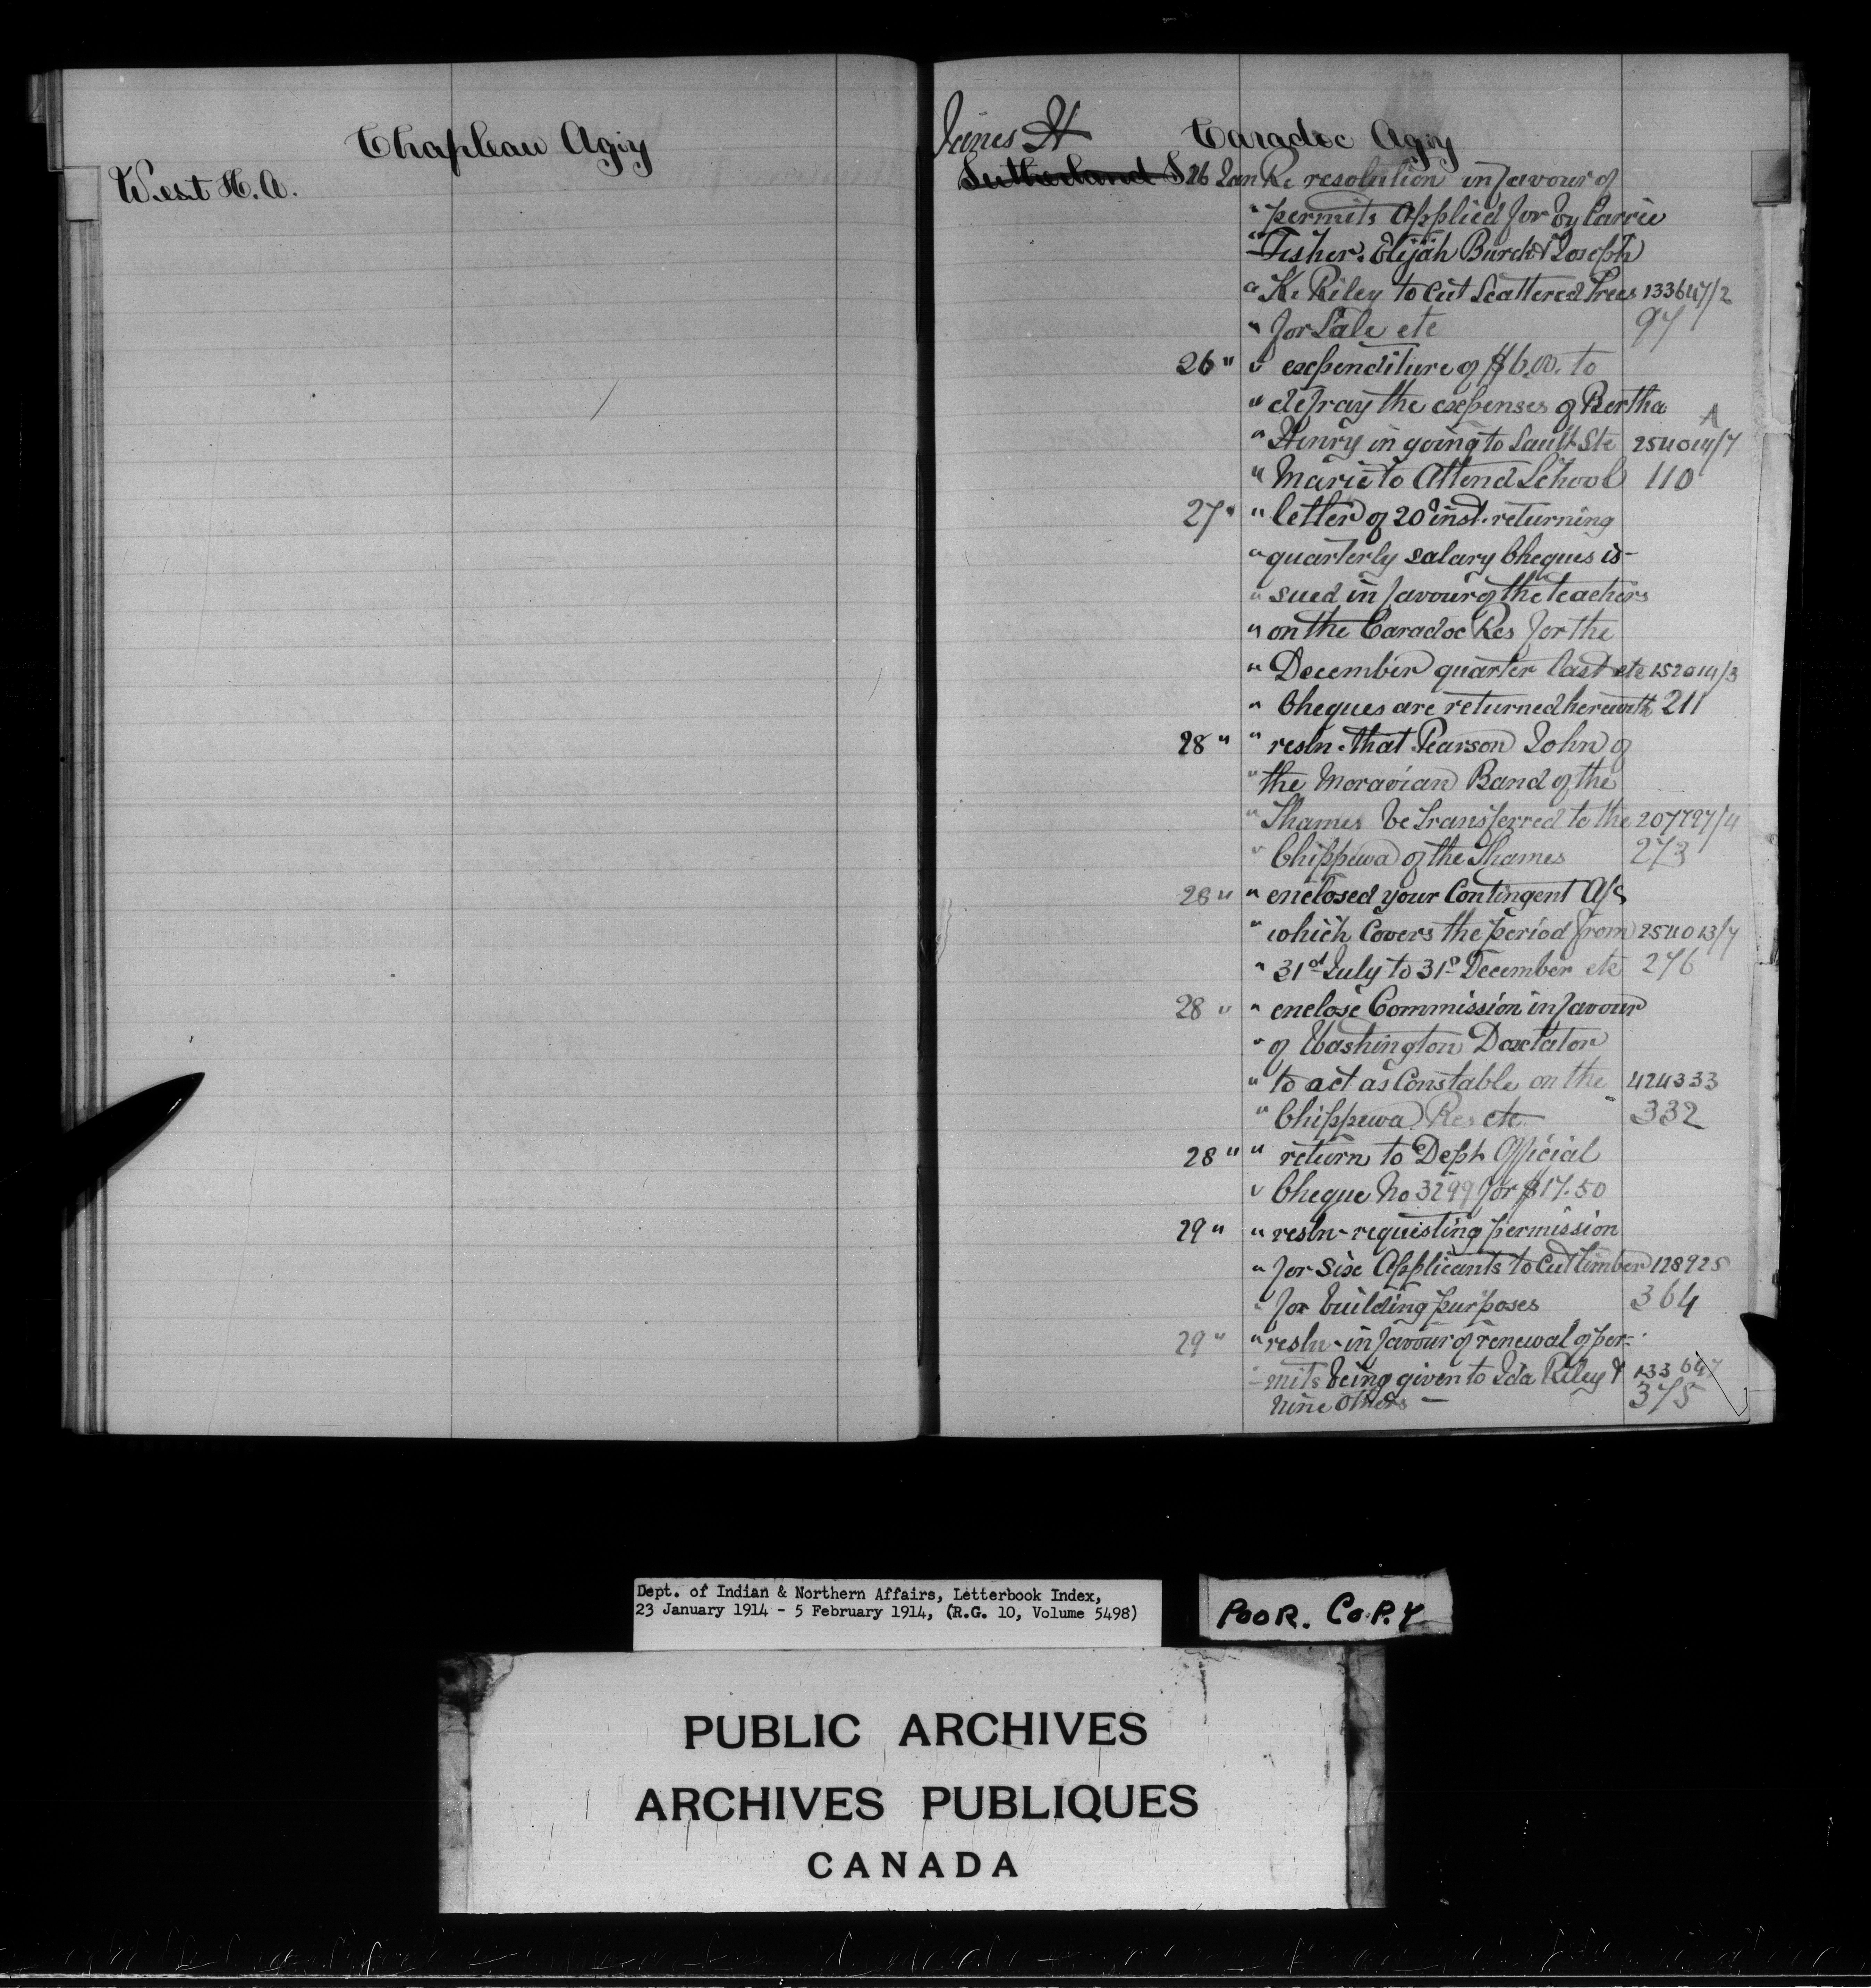 Chapleau Agcy
West H. A.
Jones H
Caradoc Agcy
Sutherland S 26 Jan Re resolution in favour of
" permits Applied for by Carrie
" Fisher. Elijah Burch & Joseph
" K. Riley to Cut Scattered Trees 133647/2
" for Sale etc 97
26 " " expenditure of $6.00. to
" defray the expenses of Bertha A
" Henry in going to Sault Ste 254014/7
" Marie to Attend School 110
27 " " letter of 20 inst. returning
" quarterly salary Cheques is-
" sued in favour of the teachers
" on the Caradoc Res for the
" December quarter last etc 152014/3
" Cheques are returned herewith 211
28 " " resln. that Pearson John of
" the Moravian Band of the
" Thames be Transferred to the 207797/4
" Chippewa of the Thames 273
28 " " enclosed your Contingent A/c
" which Covers the period from 254013/7
" 31st July to 31st December etc 276
28 " " enclose Commission in favour
" of Washington Doxtator
" to act as Constable on the 424333
" Chippewa Res etc 332
28 " " return to Dept. Official
" Cheque No 3299 for $17.50
29 " " resln- requesting permission
" for six Applicants to Cut timber 128925
" for building purposes 364
29 " " resln- in favour of renewal of per-
- mits being given to Ida Riley & 133647
nine others - 375
Dept. of Indian & Northern Affairs, Letterbook Index,
23 January 1914 - 5 February 1914, (R.G. 10, Volume 5498)
POOR. COPY
PUBLIC ARCHIVES
ARCHIVES PUBLIQUES
CANADA